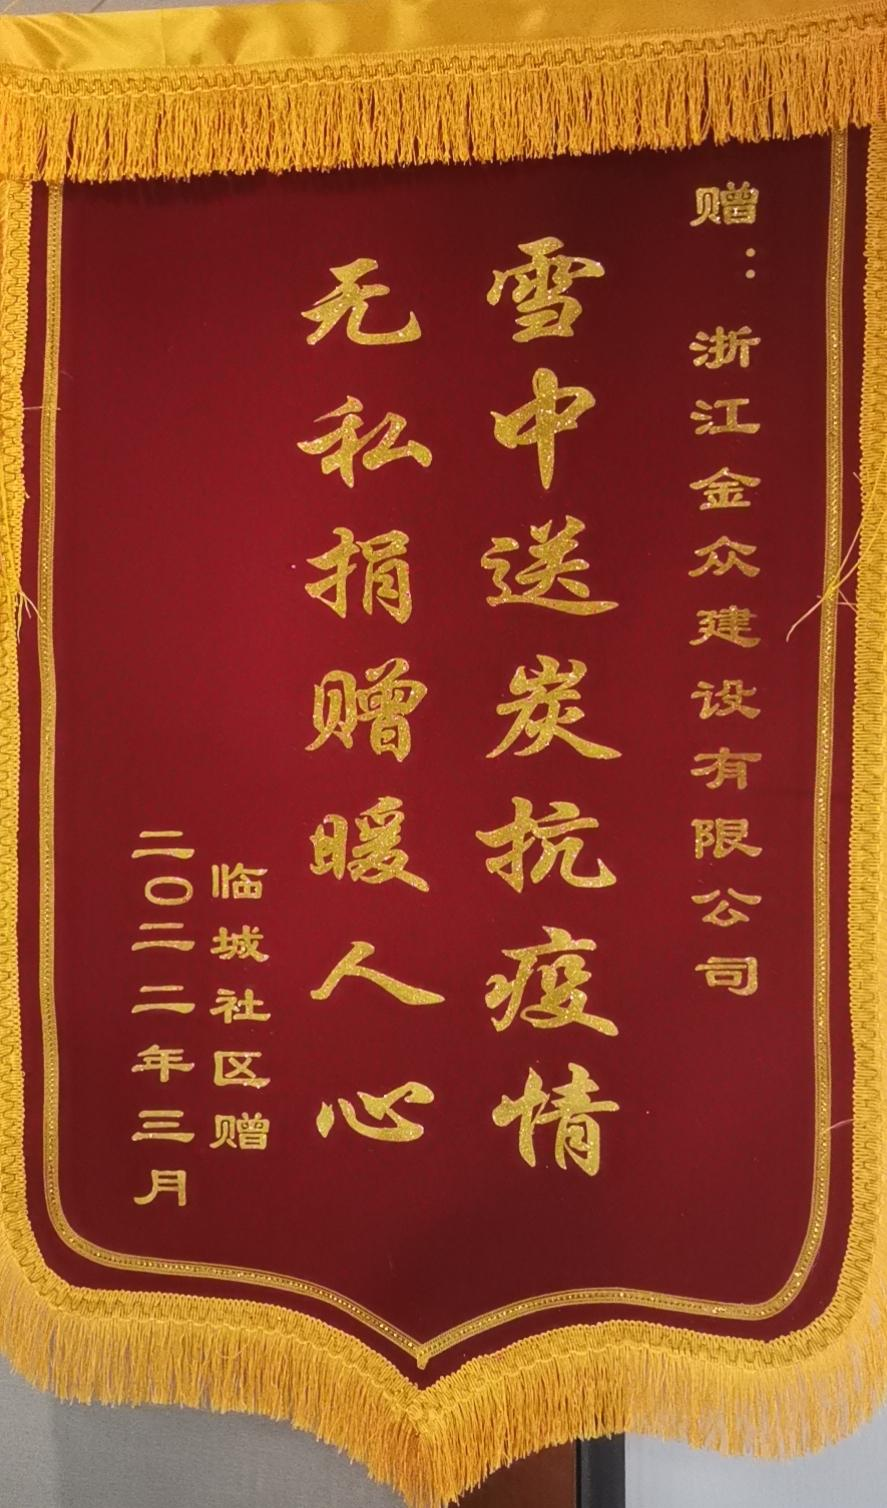 赠：浙江金众建设有限公司
雪中送炭抗疫情
无私捐赠暖人心
临城社区赠
二〇二二年三月